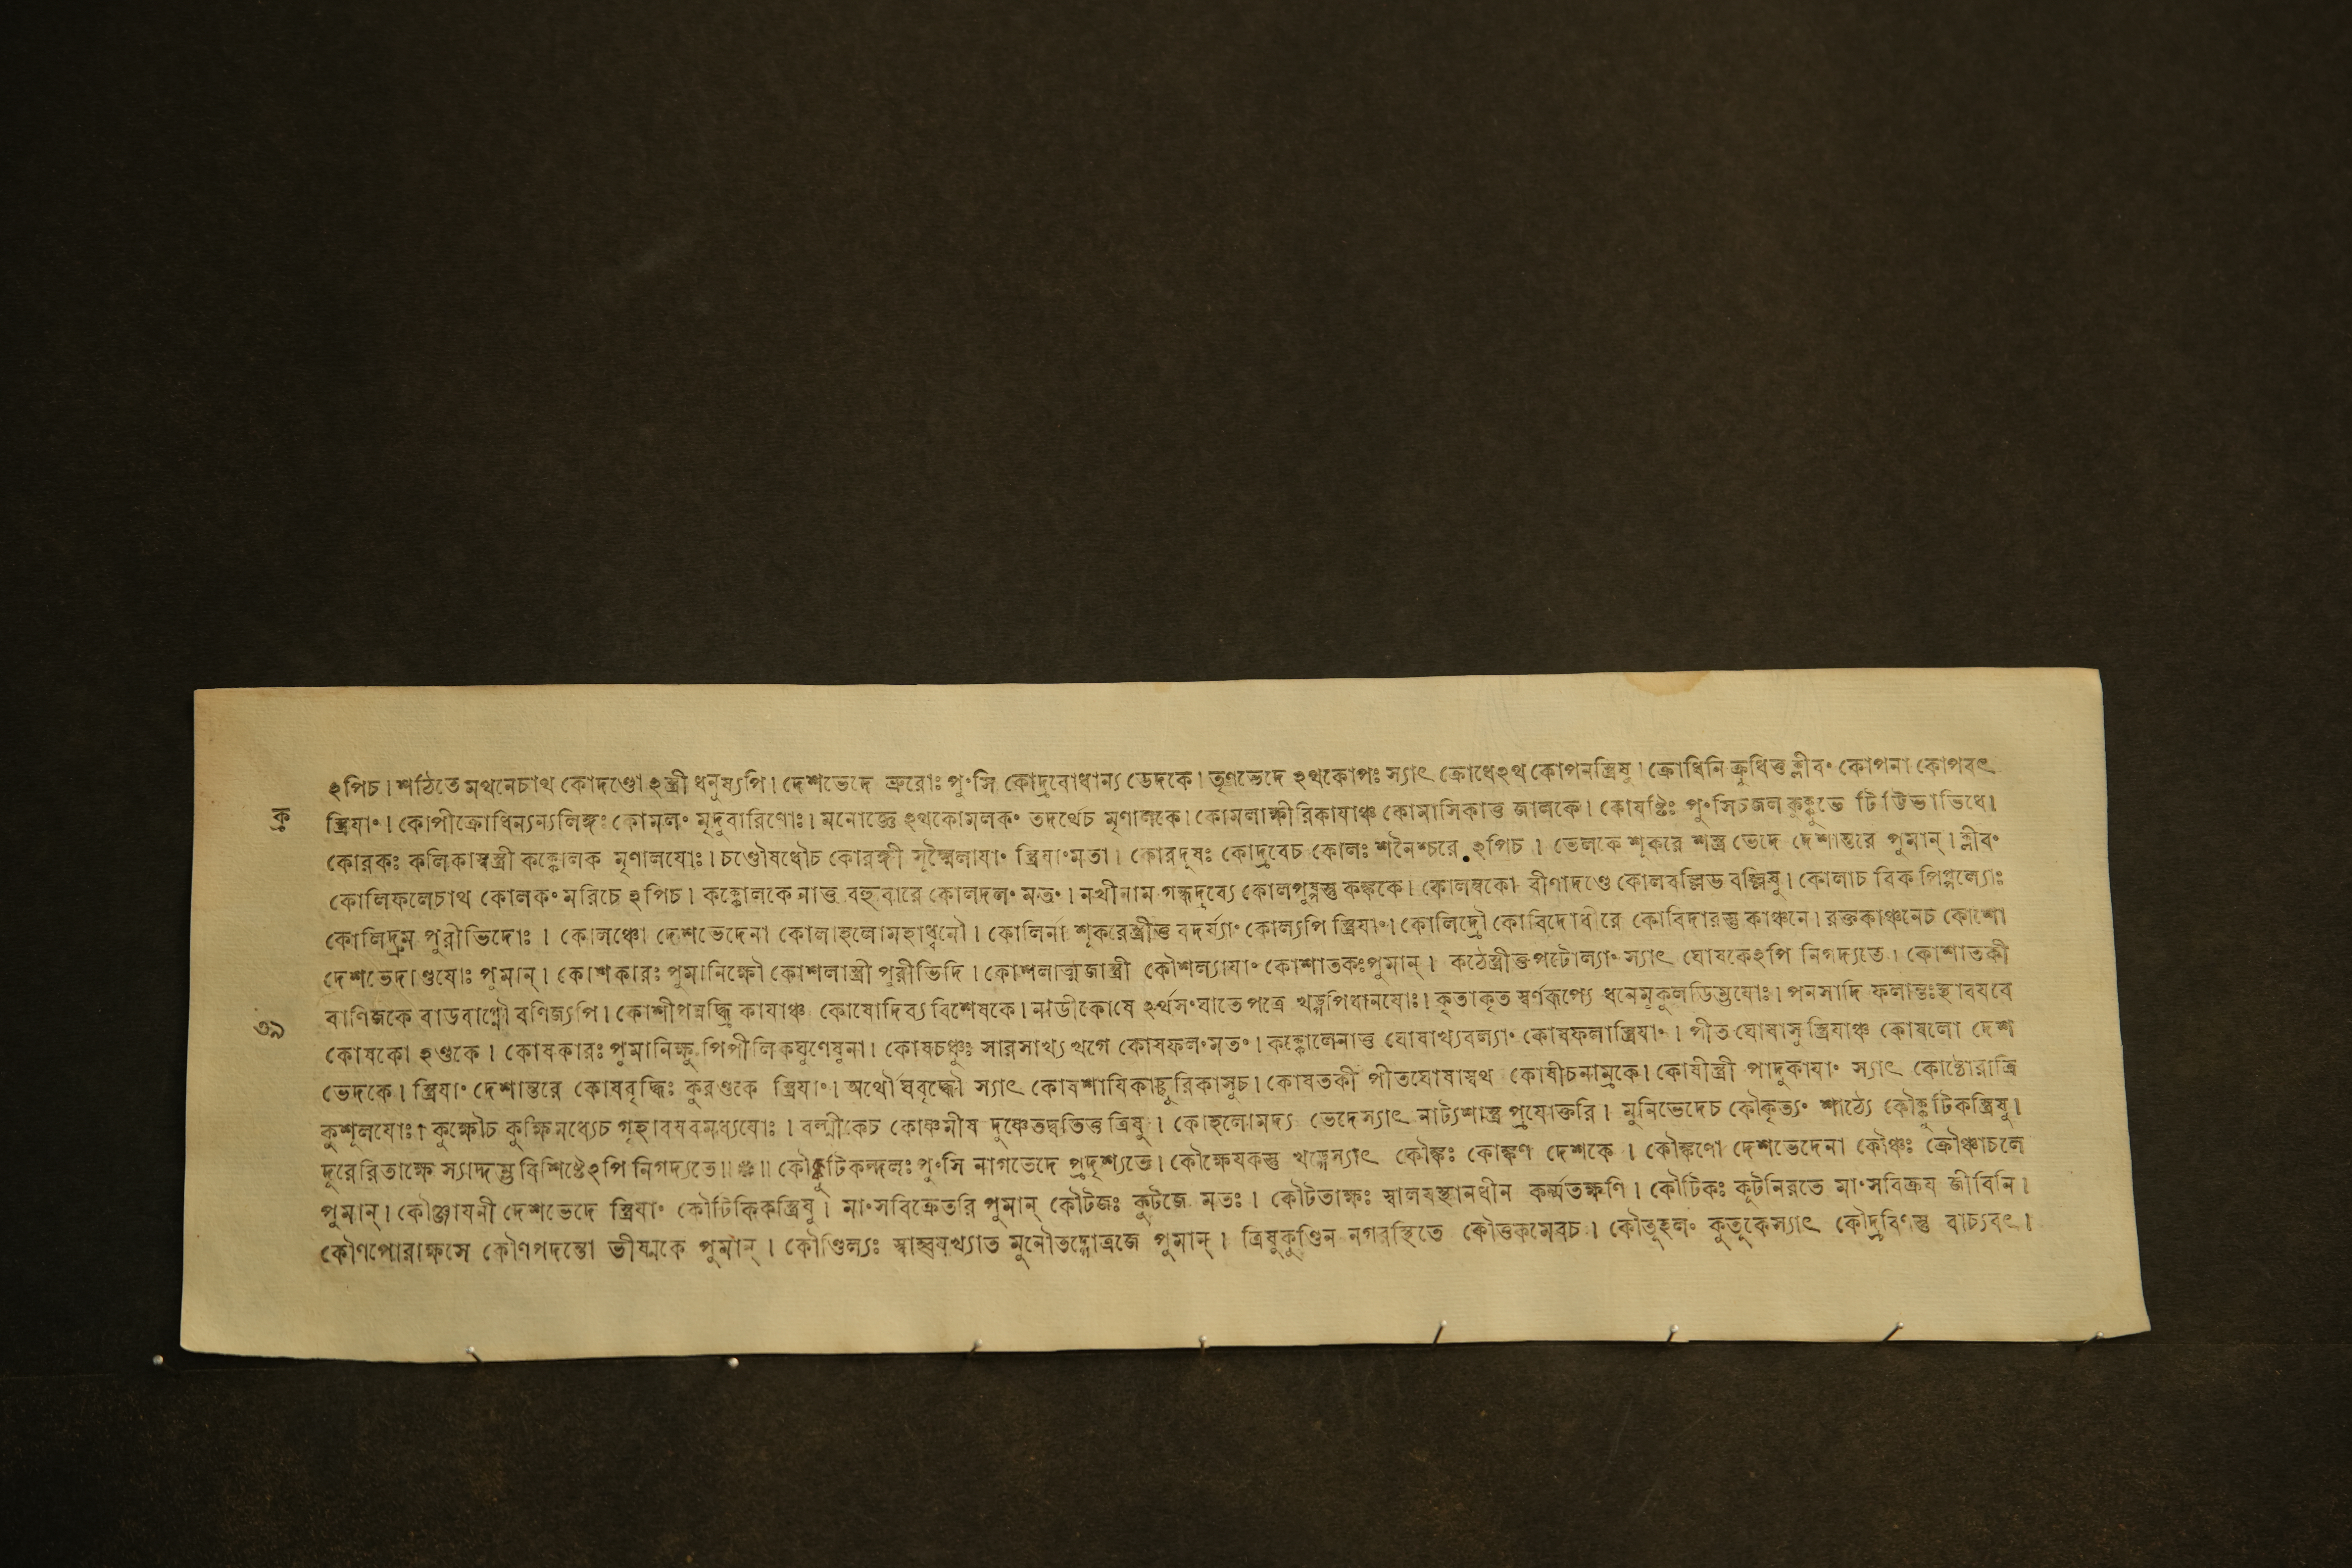 ঽপিচ। শঠিতে মথনেচাথ কোদণ্ডো ঽস্ত্রী ধনুষ্যপি। দেশভেদে ভ্রুরোঃ পুংসি কোদ্রবোধান্য ভেদকে। তৃণভেদে ঽথকোপঃ স্যাৎ ক্রোধেঽথ কোপনস্ত্রিষু। ক্রোধিনি ক্রুধিত্ত ক্লীবং কোপনা কোপবৎ
স্ত্রিযাং। কোপীক্রোধিন্যন্যলিঙ্গঃ কোমলং মৃদুবারিণোঃ। মনোজ্ঞে ঽথকোমলকং তদর্থেচ মৃণালকে। কোমলাক্ষীরিকাযাঞ্চ কোমাসিকাত্ত জালকে। কোযষ্টিঃ পুংসিচজল কুক্কুভে টি ট্টিভাভিধে।
ক্র
কোরকঃ কলিকাস্বস্ত্রী কক্কোলক মৃণালযোঃ। চণ্ডৌষধৌচ কোরঙ্গী সূক্ষ্মৈলাযাং স্ত্রিযাংমতা। কোরদুষঃ কোদ্রবেচ কোলঃ শনৈশ্চরে ঽপিচ। ভেলকে শূকরে শস্ত্র ভেদে দেশান্তরে পুমান্। ক্লীবং
কোলিফলেচাথ কোলকং মরিচে ঽপিচ। কক্কোলকে নাত্ত বহুবারে কোলদলং মতং। নখীনাম গন্ধদ্রব্যে কোলপুচ্ছস্তু কঙ্ককে। কোলম্বকো বীণাদণ্ডে কোলবল্লিভ বল্লিষু। কোলাচ বিক পিপ্পল্যোঃ
কোলিদ্রুম পুরীভিদোঃ। কোলঞ্চো দেশভেদেনা কোলাহলোমহাধ্বনৌ। কোলির্না শূকরেস্ত্রীত্ত বদর্য্যাং কোল্যপি স্ত্রিযাং। কোলিদ্রৌ কোবিদোধীরে কোবিদারস্তু কাঞ্চনে। রক্তকাঞ্চনেচ কোশো
দেশভেদাণ্ডযোঃ পুমান্। কোশকারঃ পুমানিক্ষৌ কোশলাস্ত্রী পুরীভিদি। কোশলাত্মজাস্ত্রী কৌশল্যাযাং কোশাতকঃপুমান্। কঠেস্ত্রীত্তপটোল্যাং স্যাৎ ঘোষকেঽপি নিগদ্যতে। কোশাতকী
বাণিজকে বাডবাগ্নৌ বণিজ্যপি। কোশীপন্নদ্ধ্রি কাযাঞ্চ কোষোদিব্য বিশেষকে। নাডীকোষে ঽর্থসংঘাতে পত্রে খড্গপিধানযোঃ। কৃতাকৃত স্বর্ণরূপ্যে ধনেমুকুলডিম্ভযোঃ। পনসাদি ফলান্তঃস্থাবযবে
৩৯
কোষকো ঽণ্ডকে। কোষকারঃ পুমানিক্ষু পিপীলিকঘুণেষুনা। কোষচঞ্চুঃ সারসাখ্য খগে কোষফলংমতং। কক্কোলেনাত্ত ঘোষাখ্যবল্যাং কোষফলাস্ত্রিযাং। পীত ঘোষাসু স্ত্রিযাঞ্চ কোষলো দেশ
ভেদকে। স্ত্রিযাং দেশান্তরে কোষবৃদ্ধিঃ কুরণ্ডকে স্ত্রিযাং। অর্থৌঘবৃদ্ধৌ স্যাৎ কোষশাযিকাচ্ছুরিকাসুচ। কোষতকী পীতঘোষাস্বথ কোষীচনাম্রকে। কোষীস্ত্রী পাদুকাযাং স্যাৎ কোষ্ঠোরাত্রি
কুশূলযোঃ। কুক্ষৌচ কুক্ষিমধ্যেচ গৃহাবযবমধ্যযোঃ। বল্মীকেচ কোষ্ণমীষ দুষ্ণেতদ্বতিত্ত ত্রিষু। কোহলোমদ্য ভেদেস্যাৎ নাট্যশাস্ত্র প্রযোক্তরি। মুনিভেদেচ কৌকৃত্যং শাঠ্যে কৌক্কুটিকস্ত্রিষু।
দুরেরিতাক্ষে স্যাদ্দম্ভ বিশিষ্টেঽপি নিগদ্যতে॥ ❋॥ কৌক্কুটিকন্দলঃ পুংসি নাগভেদে প্রদৃশ্যতে। কৌক্ষেযকস্তু খড়্গেস্যাৎ কৌঙ্কঃ কোঙ্কণ দেশকে। কৌঙ্কণো দেশভেদেনা কৌঞ্চঃ ক্রৌঞ্চাচলে
পুমান্। কৌঞ্জাযনী দেশভেদে স্ত্রিযাং কৌটিকিকস্ত্রিষু। মাংসবিক্রেতরি পুমান্ কৌটজঃ কুটজে মতঃ। কৌটতাক্ষঃ স্বালযস্থানধীন কর্ম্মতক্ষণি। কৌটিকঃ কূটনিরতে মাংসবিক্রয জীবিনি।
কৌণপোরাক্ষসে কৌণপদন্তো ভীষ্মকে পুমান্। কৌণ্ডিল্যঃ স্বাহ্বযখ্যাত মুনৌতদ্গোত্রজে পুমান্। ত্রিষুকুণ্ডিন নগরস্থিতে কৌত্তকমেবচ। কৌতূহলং কুতুকেস্যাৎ কৌদ্রবিণস্তু বাচ্যবৎ।